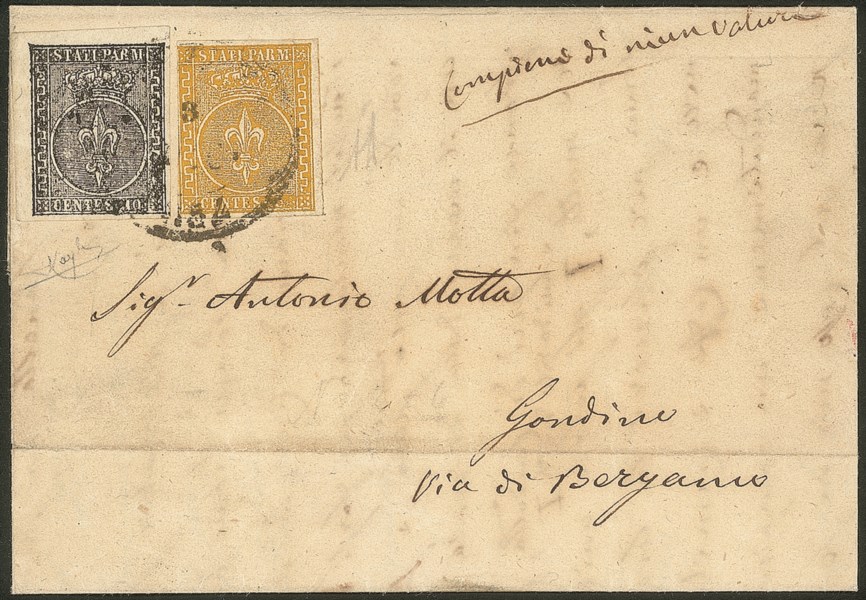 STATI PARM
CENTES. 10
STATI PARM
CENTES.
3
Campione di niun valore
Sigr. Antonio Motta
Gondino
Via di Bergamo